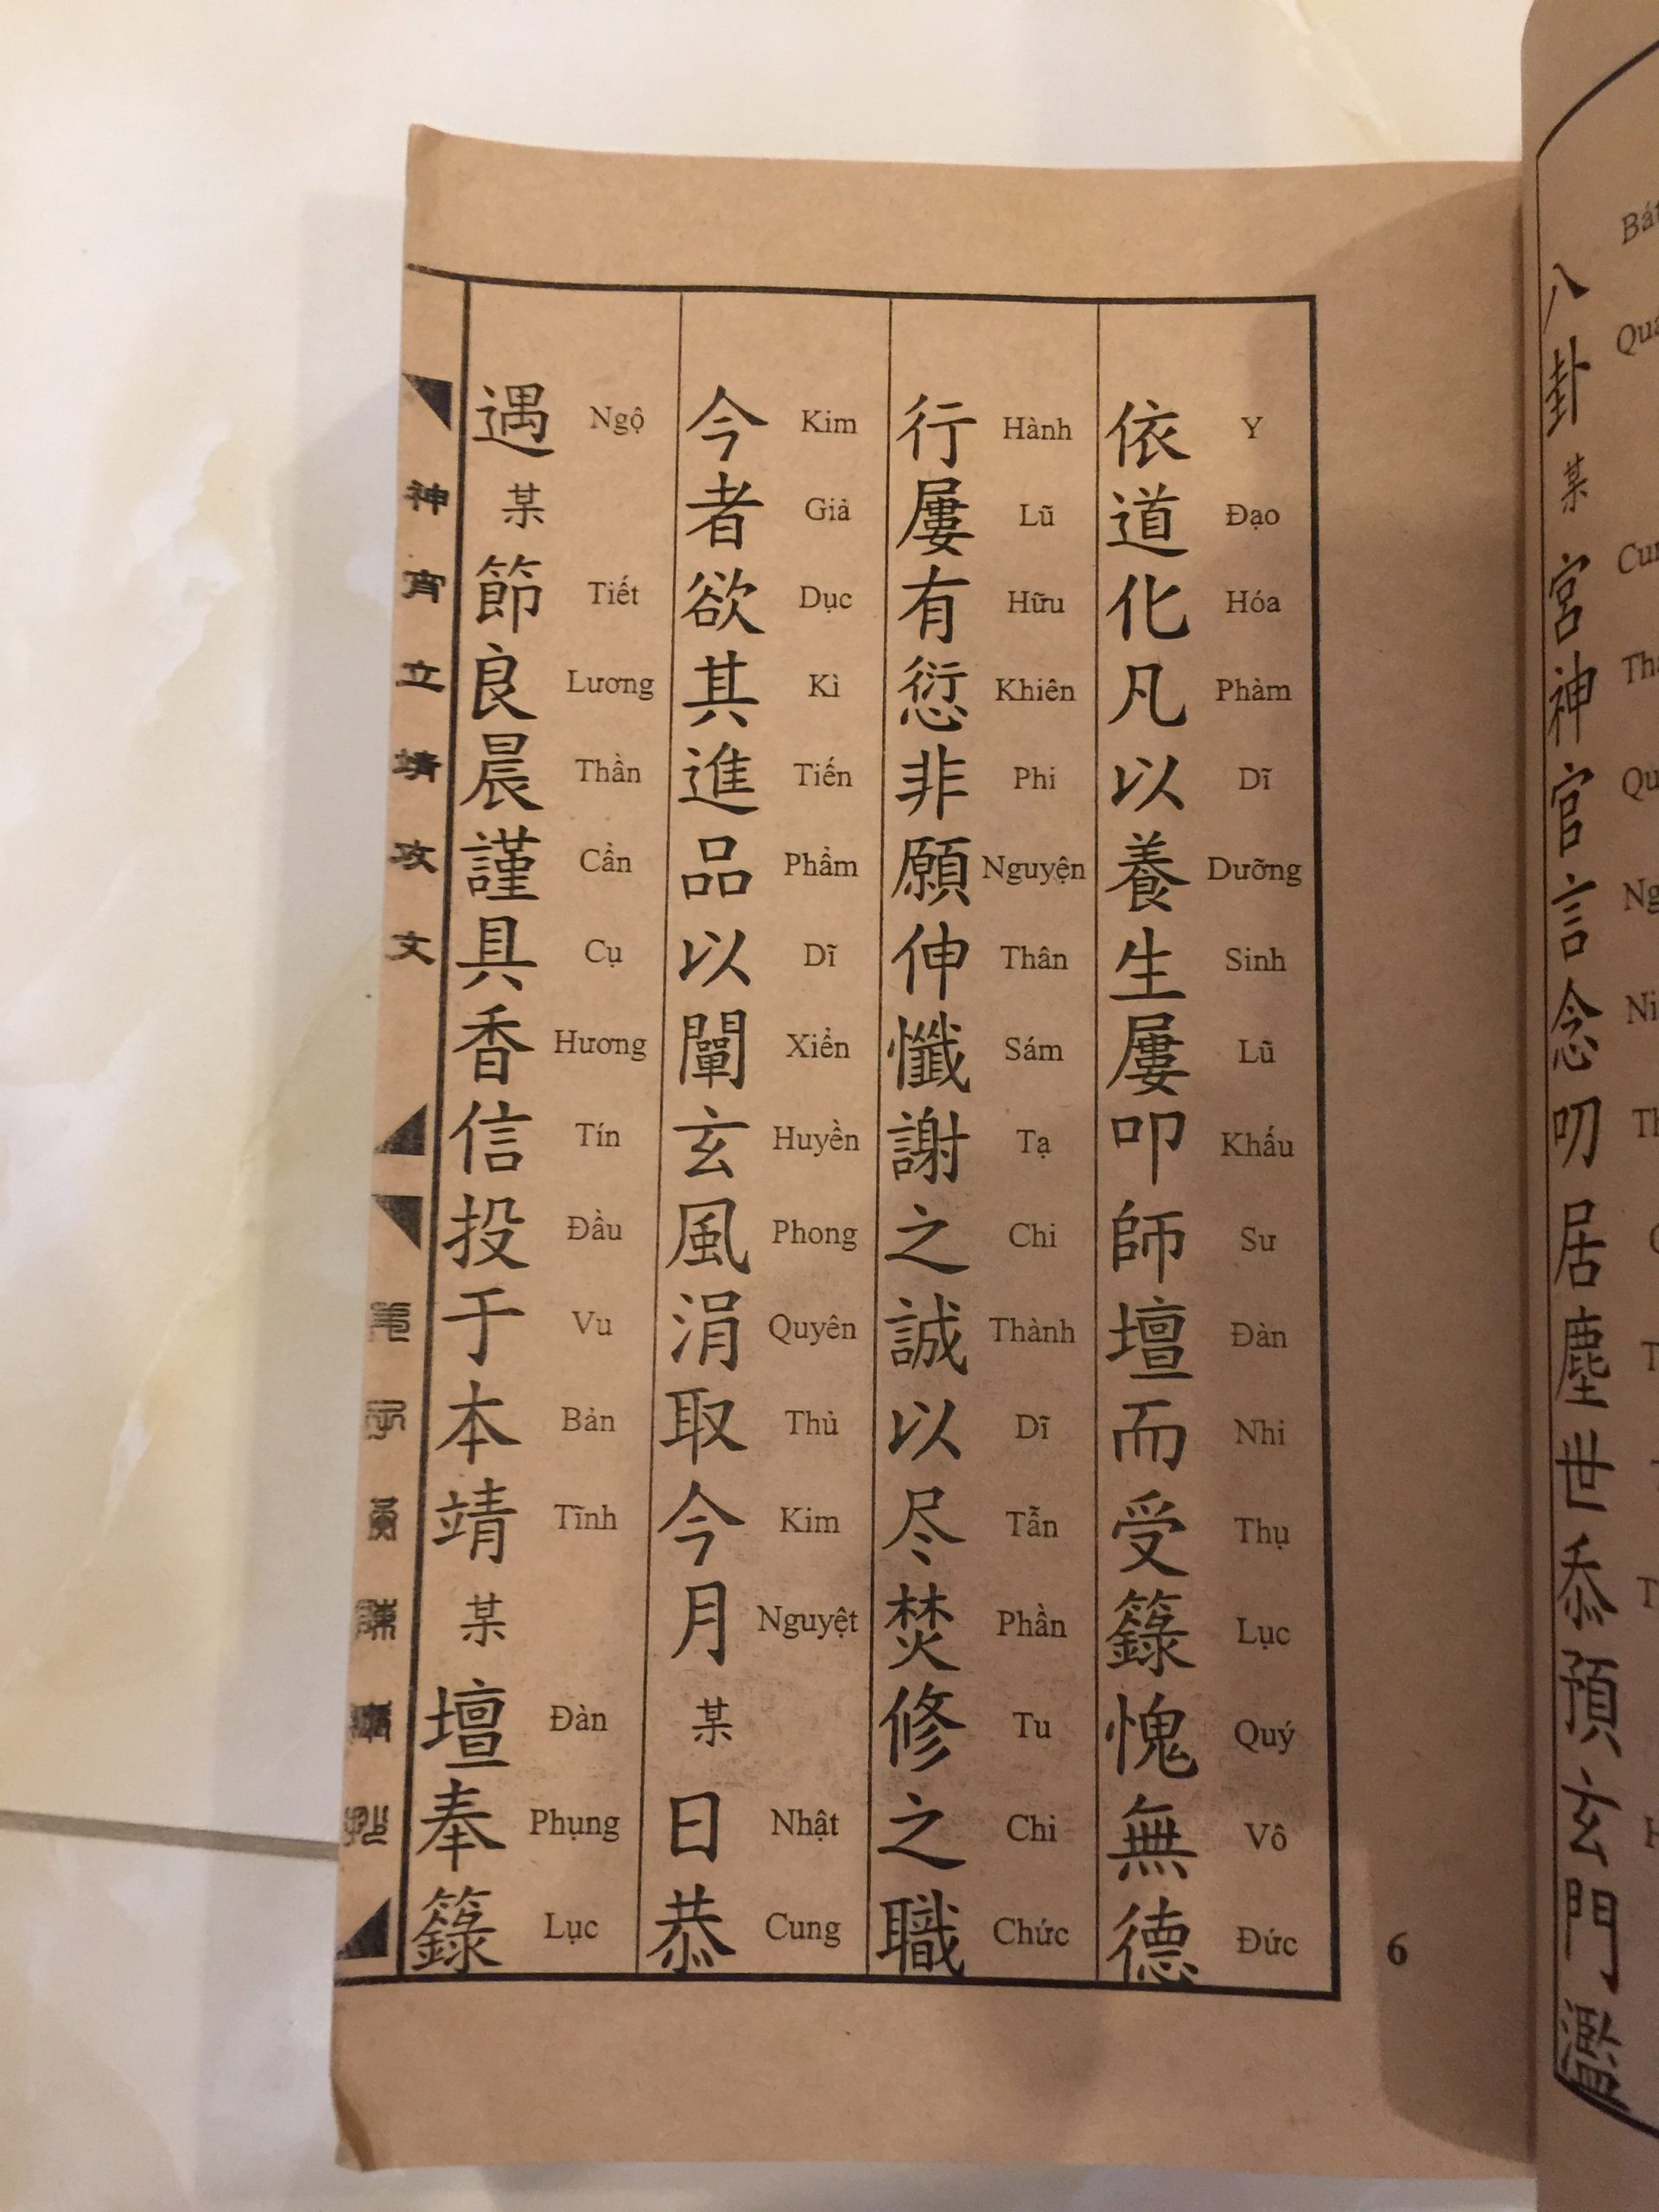 八卦某宮神官言念叨居塵世忝預玄門濫
依道化凡以養生屢叩師壇而受籙愧無德
Y Đạo Hóa Phàm Dĩ Dưỡng Sinh Lũ Khấu Sư Đàn Nhi Thụ Lục Quý Vô Đức
行屢有愆非願伸懺謝之誠以尽焚修之職
Hành Lũ Hữu Khiên Phi Nguyện Thân Sám Tạ Chi Thành Dĩ Tẫn Phần Tu Chi Chức
今者欲其進品以闡玄風涓取今月某日恭
Kim Giả Dục Kì Tiến Phẩm Dĩ Xiển Huyền Phong Quyên Thủ Kim Nguyệt Nhật Cung
遇某節良晨謹具香信投于本靖某壇奉籙
Ngộ Tiết Lương Thần Cẩn Cụ Hương Tín Đầu Vu Bản Tĩnh Đàn Phụng Lục
神宵立靖攻文
6